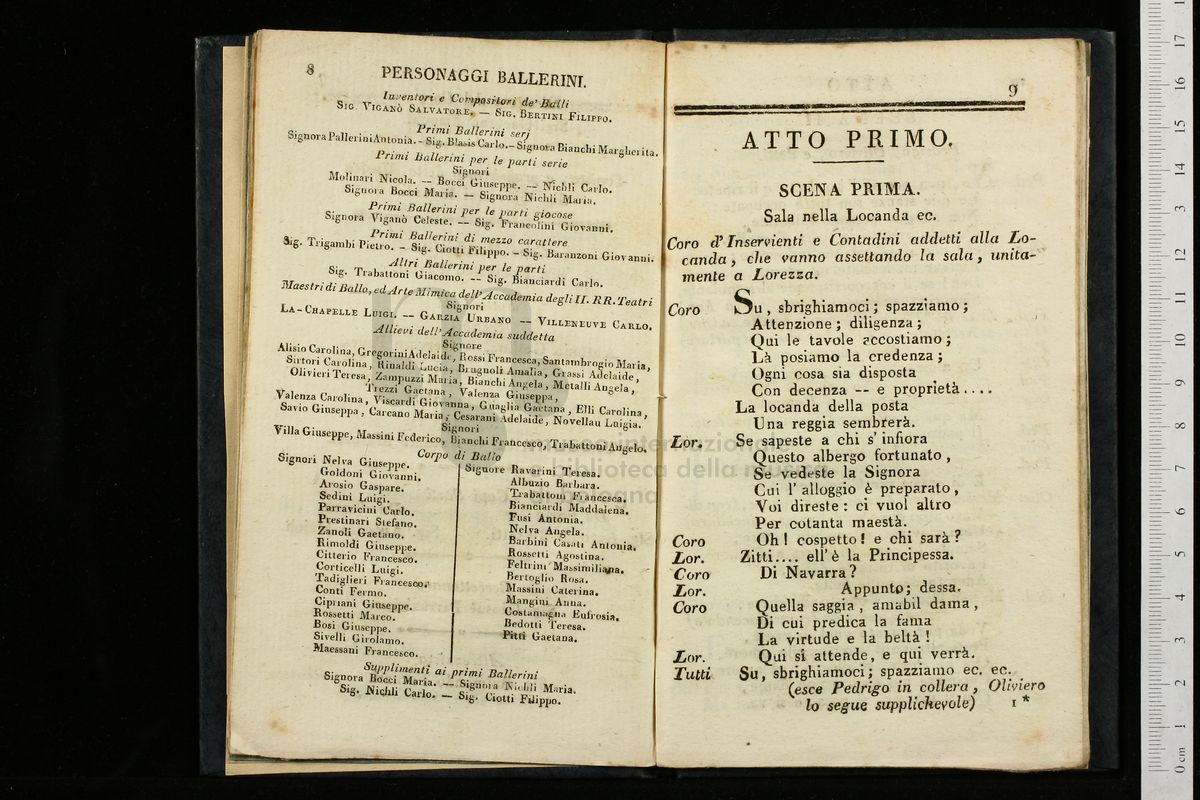 8
PERSONAGGI BALLERINI.
Inventori e Compositori de' Balli
SIG. VIGANÒ SALVATORE. — SIG. BERTINI FILIPPO.
Primi Ballerini serj
Signora Pallerini Antonia. - Sig. Blasis Carlo. - Signora Bianchi Margherita.
Primi Ballerini per le parti serie
Signori
Molinari Nicola. — Bocci Giuseppe. — Nichli Carlo.
Signora Bocci Maria. — Signora Nichli Maria.
Primi Ballerini per le parti giocose
Signora Viganò Celeste. — Sig. Francolini Giovanni.
Primi Ballerini di mezzo carattere
Sig. Trigambi Pietro. - Sig. Ciotti Filippo. - Sig. Baranzoni Giovanni.
Altri Ballerini per le parti
Sig. Trabattoni Giacomo. — Sig. Bianciardi Carlo.
Maestri di Ballo, ed Arte Mimica dell'Accademia degli II. RR. Teatri
Signori
LA-CHAPELLE LUIGI. — GARZIA URBANO — VILLENEUVE CARLO.
Allievi dell'Accademia suddetta
Signore
Alisio Carolina, Gregorini Adelaide, Rossi Francesca, Santambrogio Maria,
Sirtori Carolina, Rinaldi Lucia, Brugnoli Amalia, Grassi Adelaide,
Olivieri Teresa, Zampuzzi Maria, Bianchi Angela, Metalli Angela,
Trezzi Gaetana, Valenza Giuseppa,
Valenza Carolina, Viscardi Giovanna, Guaglia Gaetana, Elli Carolina,
Savio Giuseppa, Carcano Maria, Cesarani Adelaide, Novellau Luigia.
Signori
Villa Giuseppe, Massini Federico, Bianchi Francesco, Trabattoni Angelo.
Corpo di Ballo
Signori Nelva Giuseppe.
Goldoni Giovanni.
Arosio Gaspare.
Sedini Luigi.
Parravicini Carlo.
Prestinari Stefano.
Zanoli Gaetano.
Rimoldi Giuseppe.
Citterio Francesco.
Corticelli Luigi.
Tadiglieri Francesco.
Conti Fermo.
Cipriani Giuseppe.
Rossetti Marco.
Bosi Giuseppe.
Sivelli Girolamo.
Maessani Francesco.
Signore Ravarini Teresa.
Albuzio Barbara.
Trabattoni Francesca.
Bianciardi Maddalena.
Fusi Antonia.
Nelva Angela.
Barbini Casati Antonia.
Rossetti Agostina.
Feltrini Massimiliana.
Bertoglio Rosa.
Massini Caterina.
Mangini Anna.
Costamagna Eufrosia.
Bedotti Teresa.
Pitti Gaetana.
Supplimenti ai primi Ballerini
Signora Bocci Maria. — Signora Nichli Maria.
Sig. Nichli Carlo. — Sig. Ciotti Filippo.
9
ATTO PRIMO.
SCENA PRIMA.
Sala nella Locanda ec.
Coro d'Inservienti e Contadini addetti alla Lo-
canda, che vanno assettando la sala, unita-
mente a Lorezza.
Coro Su, sbrighiamoci; spazziamo;
Attenzione; diligenza;
Qui le tavole accostiamo;
Là posiamo la credenza;
Ogni cosa sia disposta
Con decenza -- e proprietà....
La locanda della posta
Una reggia sembrerà.
Lor. Se sapeste a chi s' infiora
Questo albergo fortunato,
Se vedeste la Signora
Cui l' alloggio è preparato,
Voi direste: ci vuol altro
Per cotanta maestà.
Coro Oh! cospetto! e chi sarà?
Lor. Zitti.... ell' è la Principessa.
Coro Di Navarra?
Lor. Appunto; dessa.
Coro Quella saggia, amabil dama,
Di cui predica la fama
La virtude e la beltà!
Lor. Qui si attende, e qui verrà.
Tutti Su, sbrighiamoci; spazziamo ec. ec.
(esce Pedrigo in collera, Oliviero
lo segue supplichevole) 1 *
museo internazionale
biblioteca della musica
0 cm 1 2 3 4 5 6 7 8 9 10 11 12 13 14 15 16 17